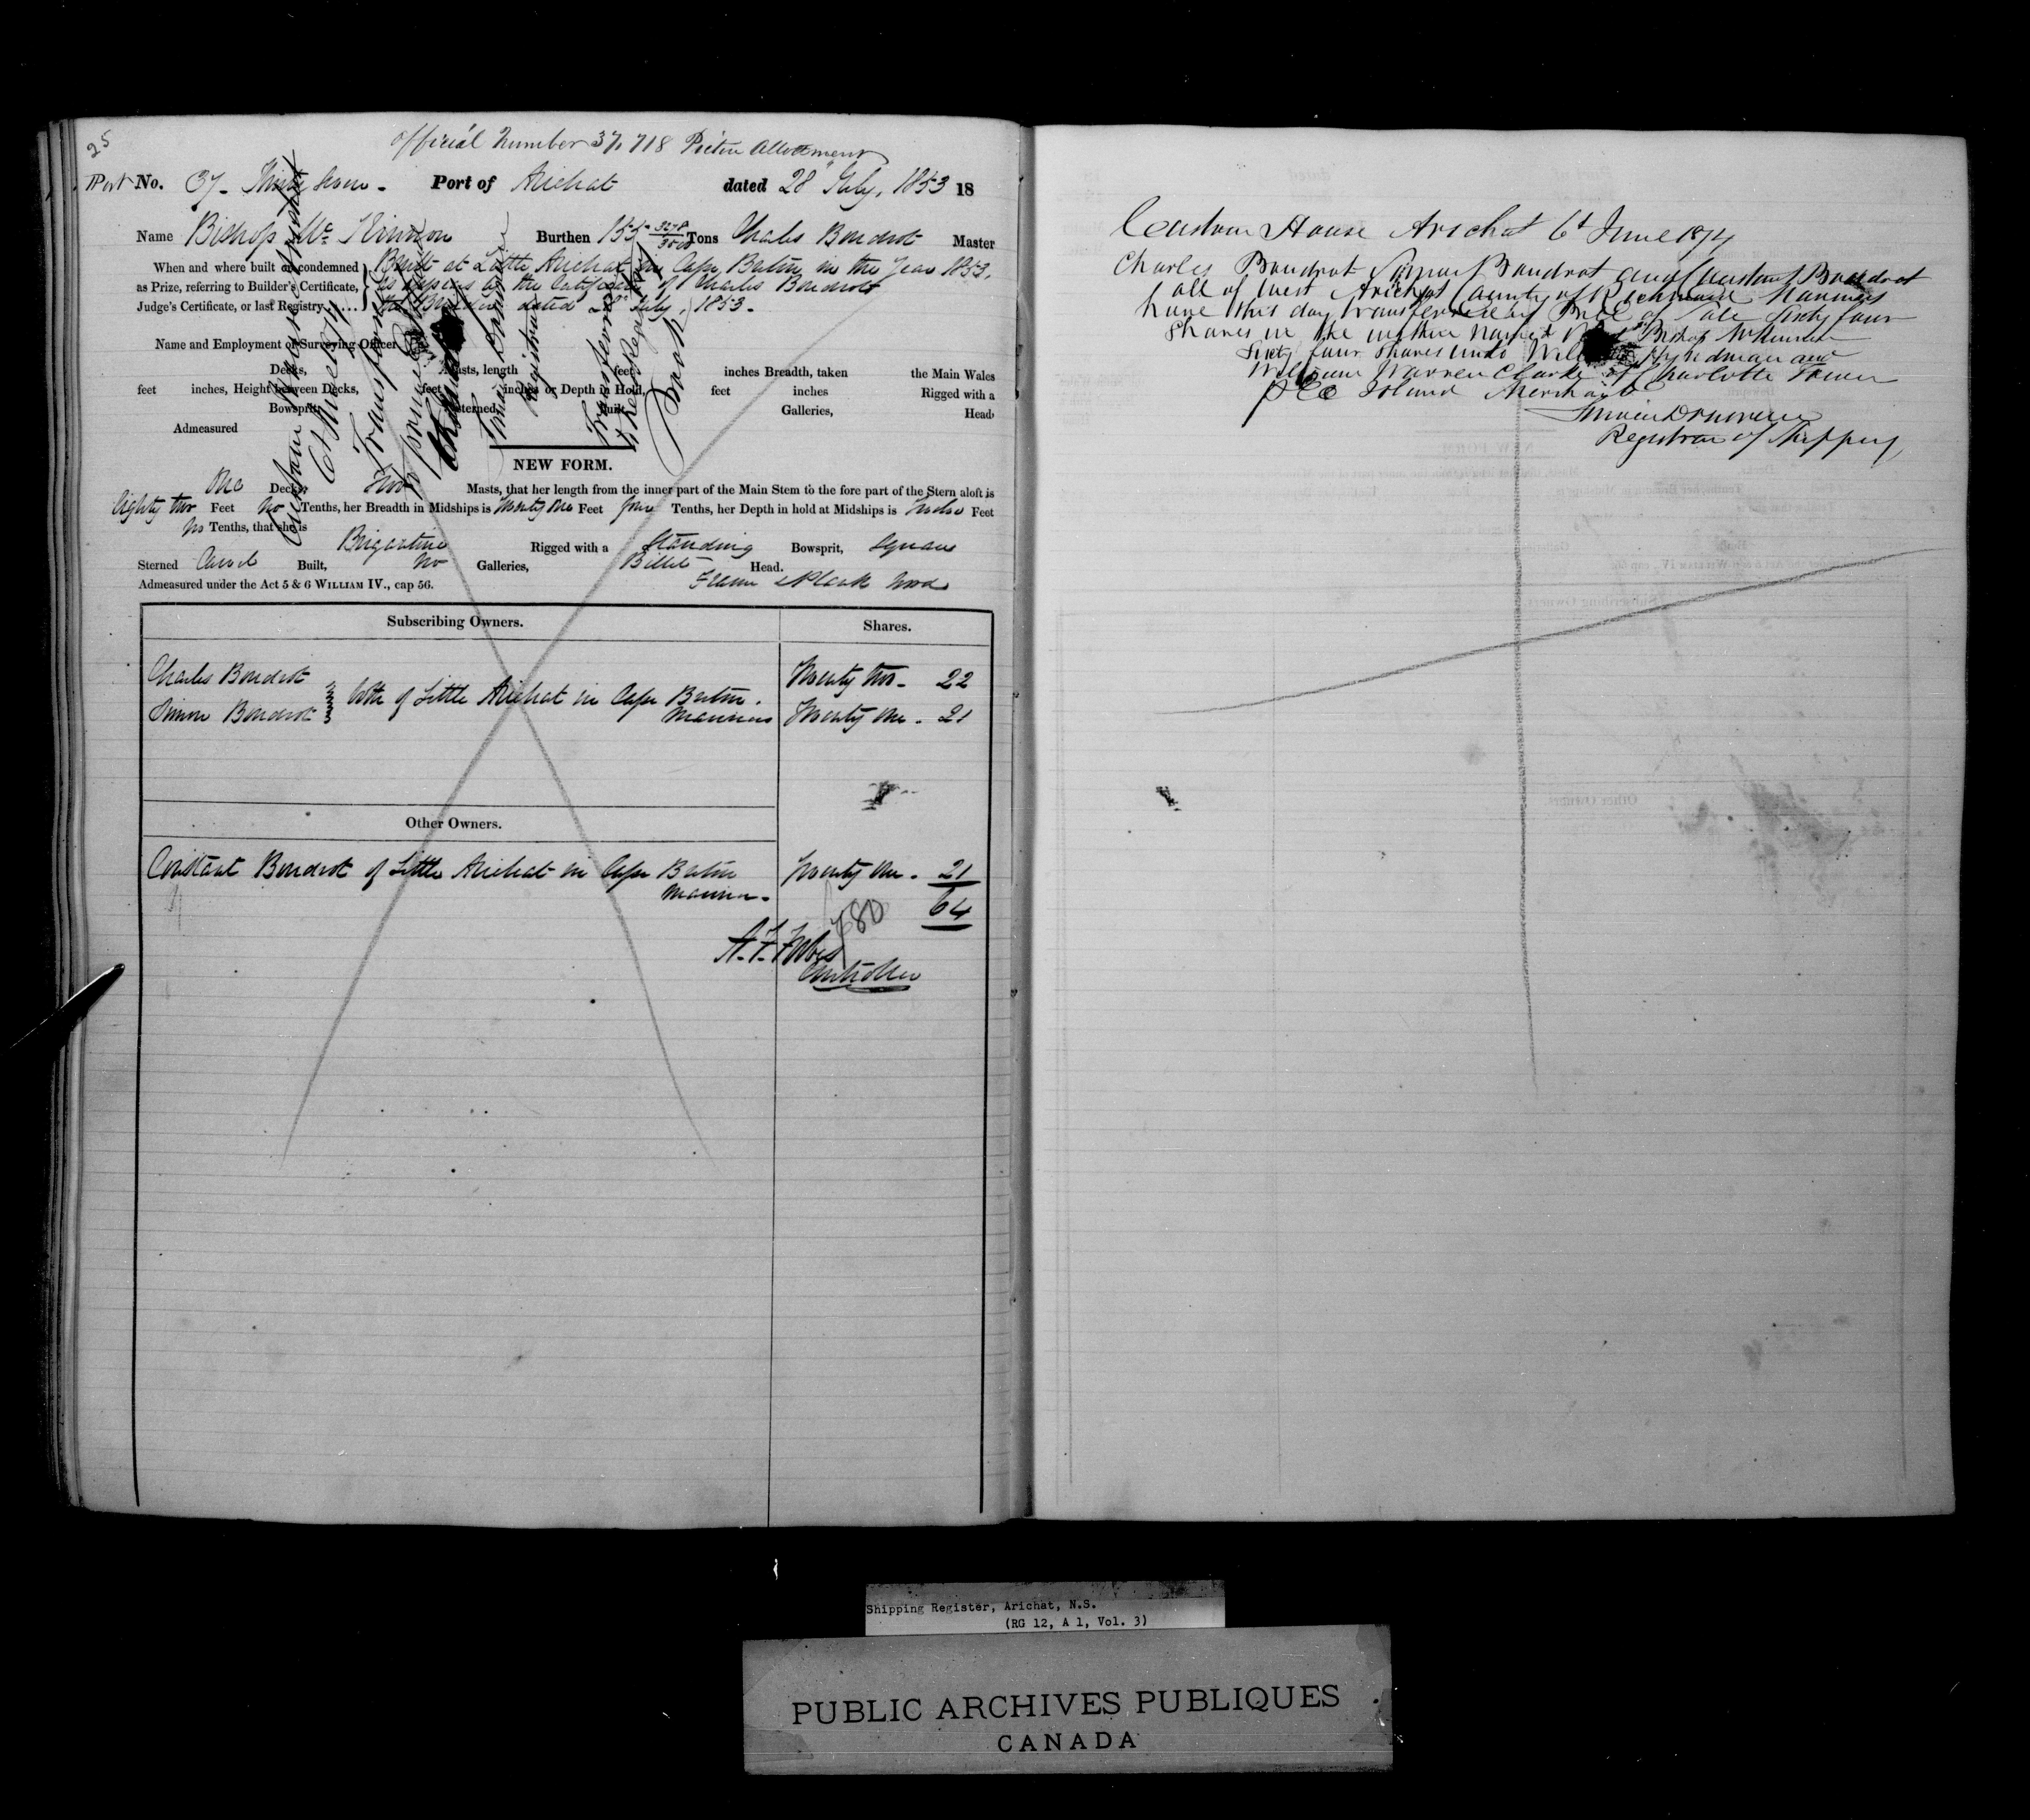 25
Official Number 37,718 Pictou Allotment
Port No. 37 - Thirty seven - Port of Arichat dated 28 July, 1853 18
Name Bishop Mc Kinnon Burthen 155 3278/3500 Tons Charles Boudrot Master
When and where built or condemned Built at Little Arichat in Cape Breton in the Year 1853,
as Prize, referring to Builder's Certificate, As appears by the Certificate of Charles Boudrot
Judge's Certificate, or last Registry the Builder dated 28 July, 1853.
Name and Employment of Surveying Officer
Decks, Masts, length feet inches Breadth, taken the Main Wales
feet inches, Height between Decks, feet inches or Depth in Hold, feet inches Rigged with a
Bowsprit, Sterned, Built, Galleries, Head
Admeasured
Custom House Arichat
6th June 1874
Transferred
Registrar
NEW FORM.
One Decks, Two Masts, that her length from the inner part of the Main Stem to the fore part of the Stern aloft is
Eighty two Feet No Tenths, her Breadth in Midships is Twenty One Feet four Tenths, her Depth in hold at Midships is Twelve Feet
No Tenths, that she is Brigantine Rigged with a Standing Bowsprit, Square
Sterned Carvel Built, No Galleries, Billet Head.
Admeasured under the Act 5 & 6 WILLIAM IV., cap 56. Frame & Plank Wood
Subscribing Owners. Shares.
Charles Boudrot Twenty two - 22
both of Little Arichat in Cape Breton.
Simon Boudrot Mariners Twenty One - 21
Other Owners.
Constant Boudrot of Little Arichat in Cape Breton Twenty One - 21
Mariner - 64
680
Controller
Custom House Arichat 6t June 1874
Charles Boudrot Simon Boudrot and Constant Boudrot
all of West Arichat County of Richmond Mariners
have this day transferred by Bill of Sale Sixty four
Shares in the within named Bishop McKinnon
Sixty four Shares unto Hyndman and
William Warren Clarke of Charlotte Town
P E Island Merchants
Registrar of Shipping
Shipping Register, Arichat, N.S.
(RG 12, A 1, Vol. 3)
PUBLIC ARCHIVES PUBLIQUES
CANADA